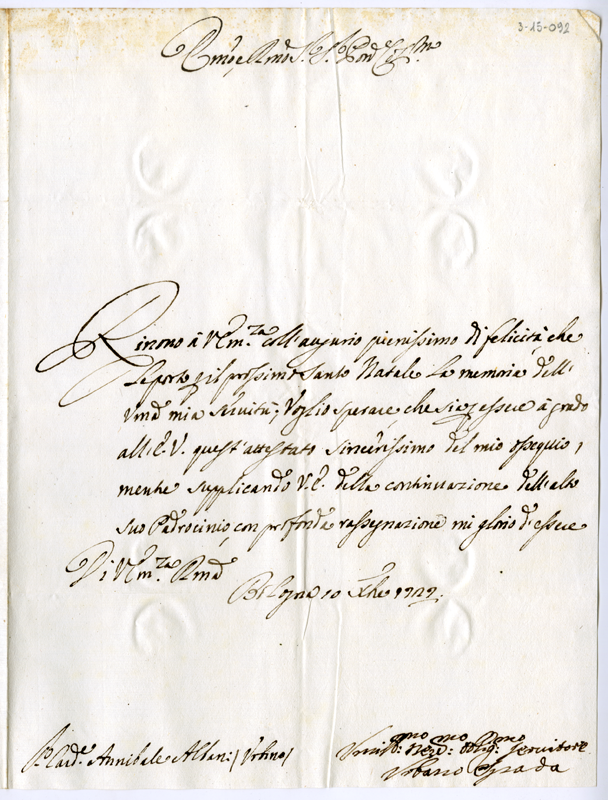 3-15-092
Emo, e Rmo Sr. Sr. Pron Colmo
Rinono à V. Em.za coll'augurio pienissimo di felicità che
Le porto p il prossimo Santo Natale la memoria dell'
umà mia servitù; Voglio sperare, che sia p essere à grado
all'E. V. quest'attestato sincerissimo del mio ossequio,
mente supplicando V. E. della continuazione dell'alto
suo Padrocinio, con profonda rassegnazione mi glorio d'essere
Di V. Em.za Rma
Bologna 10 Xbre 1727.
Card.e Annibale Albani (Urbino)
Umilmo Devmo Obligmo Servitore
Urbano Spada